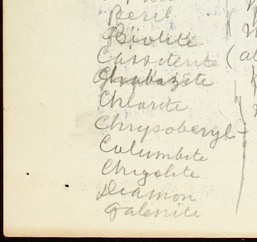 Beril
Biolite
Cassiterite (
Chabazite
Chlorite
Chrysoberyl -
Columbite
Chrysolite
Diamon
Galenite